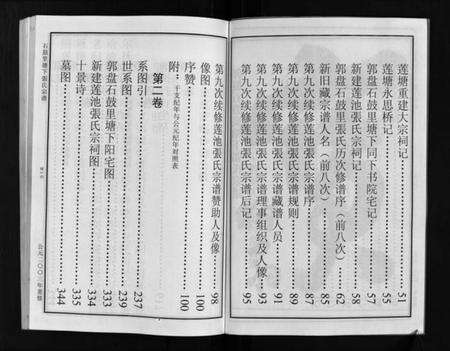 莲塘重建大宗祠记 51
莲塘永思桥记 55
郭盘石鼓里塘下同下书院宅记 57
新建莲池張氏宗祠记 58
郭盘石鼓里張氏历次修谱序（前八次） 62
新旧藏宗谱人名（前八次） 85
第九次续修莲池張氏宗谱序 87
第九次续修莲池張氏宗谱规则 89
第九次续修莲池張氏宗谱藏谱人员 91
第九次续修莲池張氏宗谱理事组织及人像 93
第九次续修莲池張氏宗谱后记 95
第九次续修莲池張氏宗谱赞助人及像 98
像图 100
序赞 100
附：干支纪年与公元纪年对照表
第二卷
系图引 237
世系图 239
郭盘石鼓里塘下阳宅图 333
新建莲池張氏宗祠图 334
十景诗 335
墓图 344
石鼓里塘下張氏宗谱
公元二〇〇三年重修